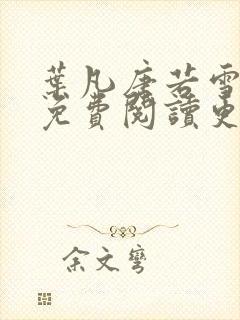 葉凡唐若雪
免費閱讀更
余文彎